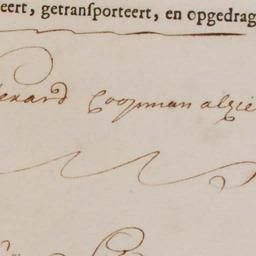 eert, getranſporteert, en opgedrag
erard Coopman alzie